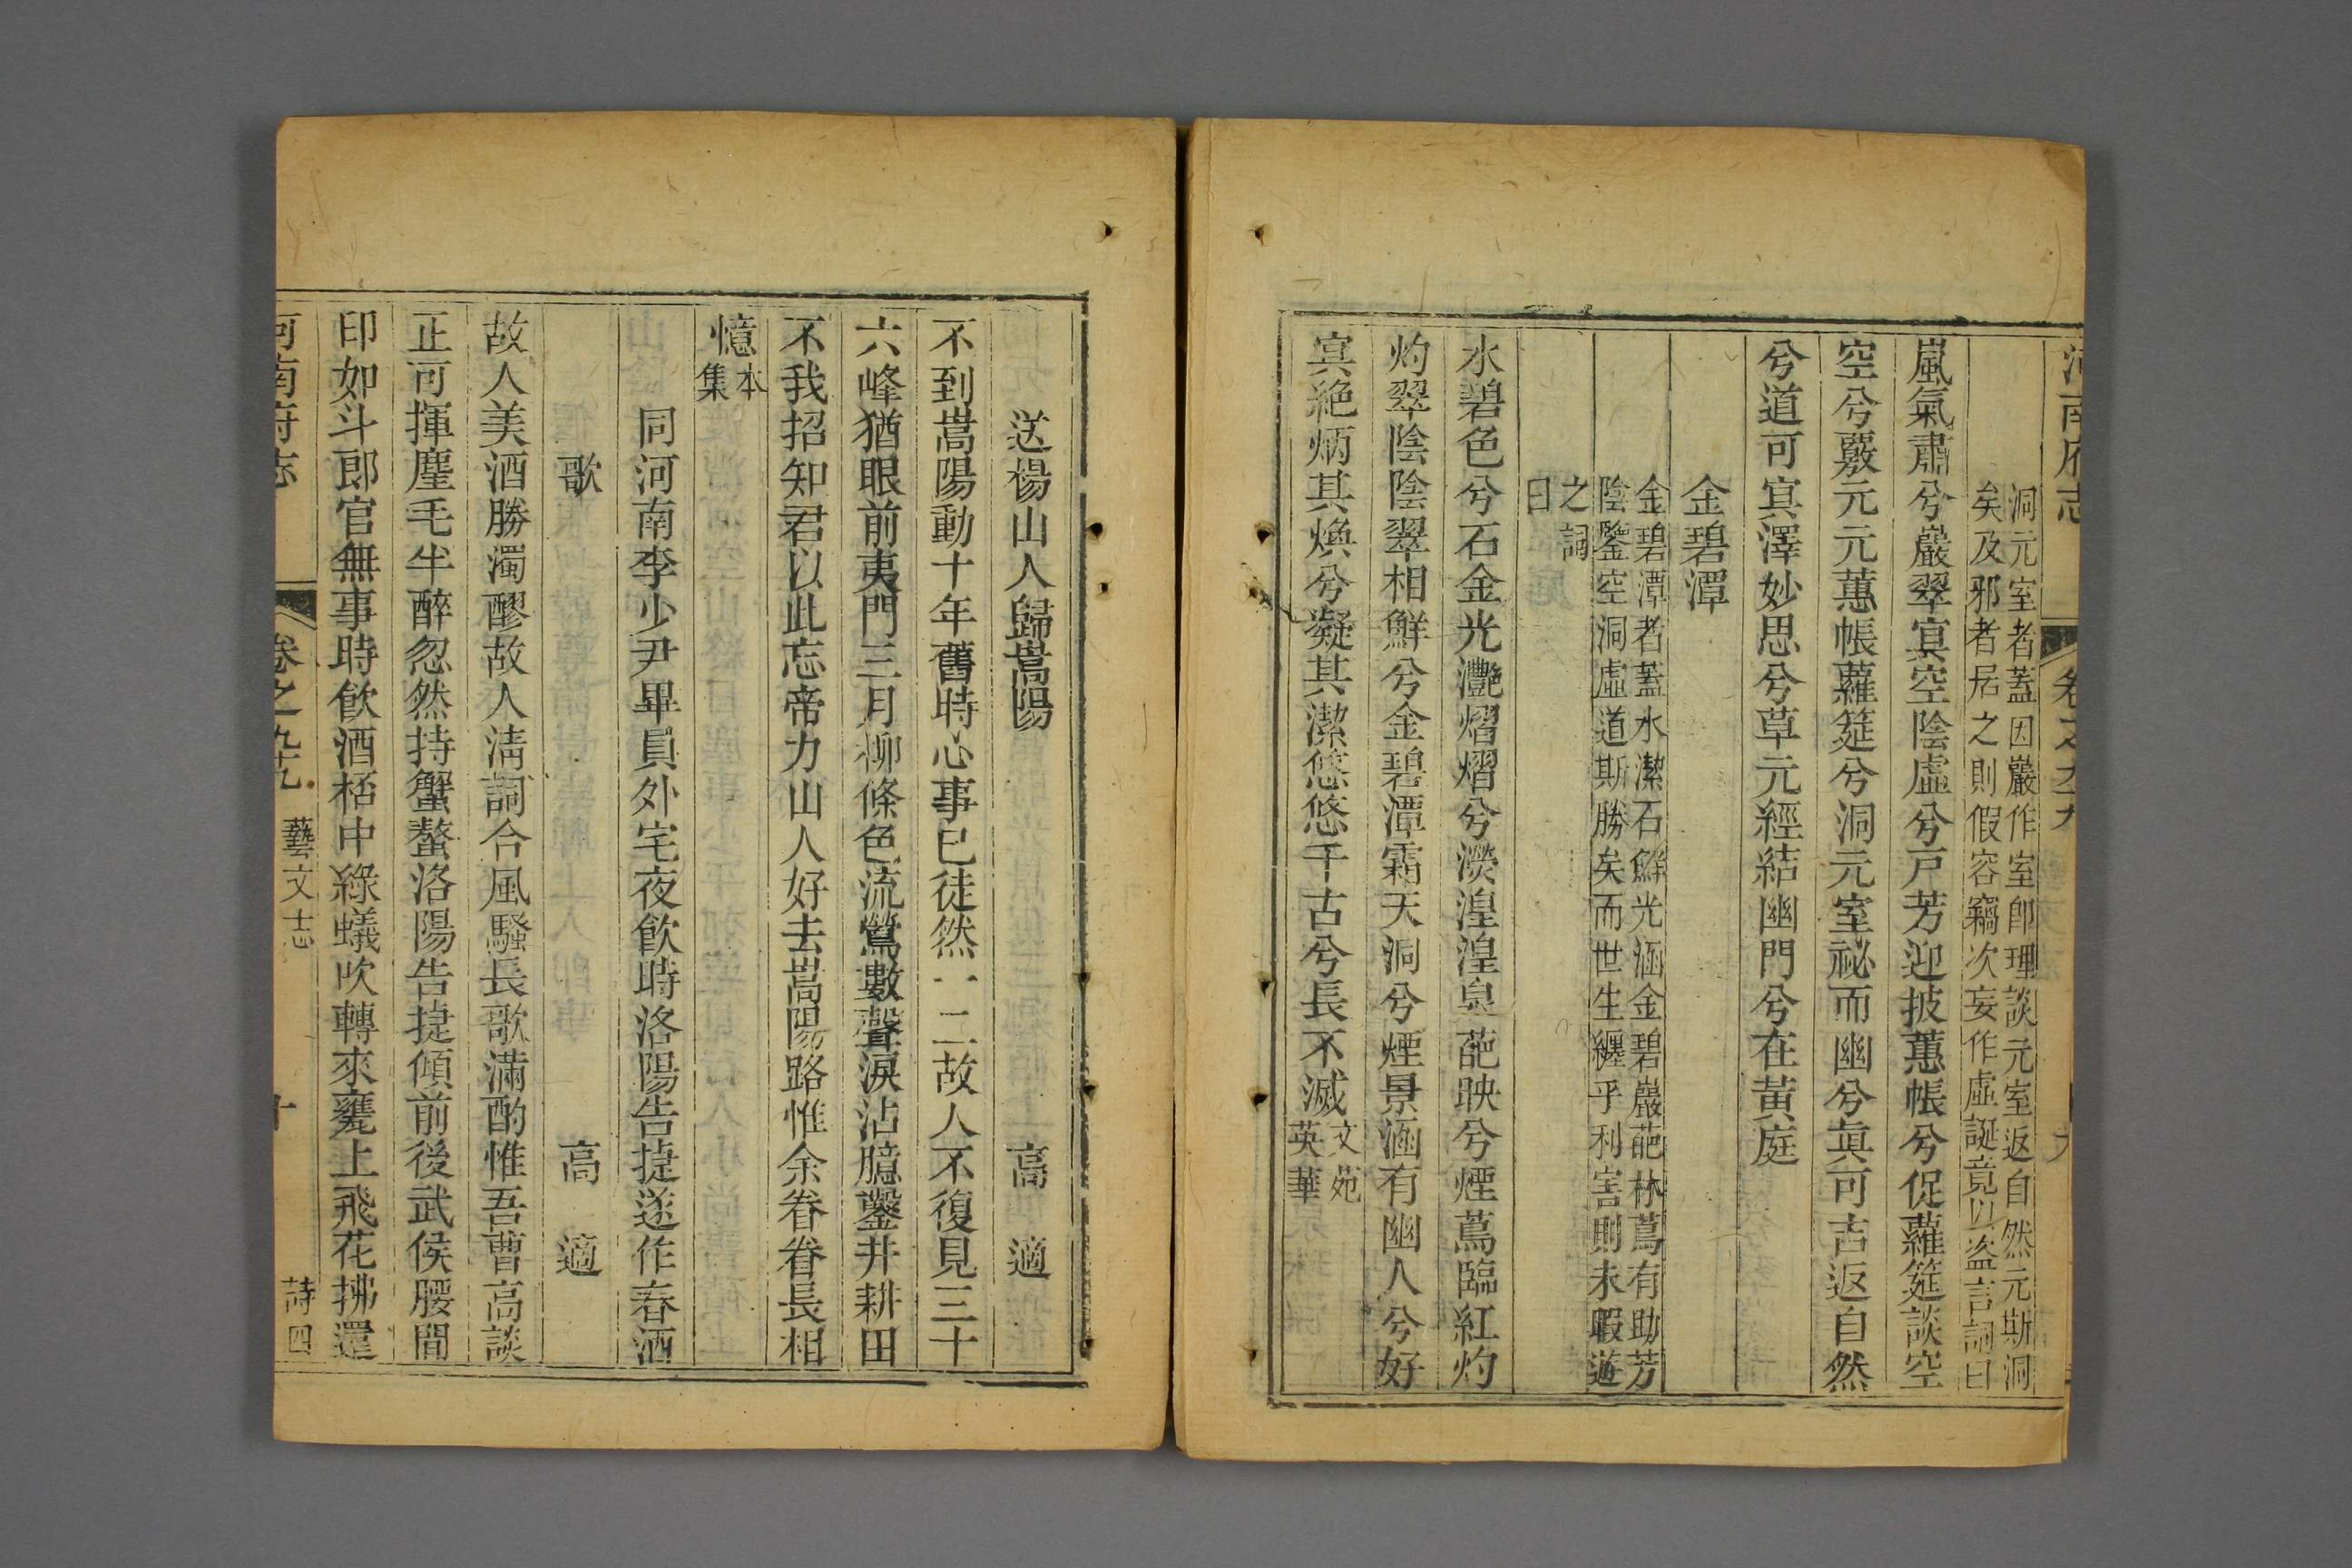 河南府志 卷之九十九
洞元室者蓋因巖作室卽理談元室返自然元斯洞
矣及邪者居之則假容竊次妄作虛誕竟以盜言詞曰
嵐氣肅兮巖翠冥空陰虛兮戸芳迎披蕙帳兮促蘿筵談空
空兮覈元元蕙帳蘿筵兮洞元室祕而幽兮眞可吉返自然
兮道可冥澤妙思兮草元經結幽門兮在黃庭
金碧潭
金碧潭者蓋水潔石鮮光涵金碧巖葩林蔦有助芳
陰鑒空洞虛道斯勝矣而世生纏乎利害則未暇遊
之詞
曰
水碧色兮石金光灔熠熠兮濙湟湟泉葩映兮煙蔦臨紅灼
灼翠陰陰翠相鮮兮金碧潭霜天洞兮煙景涵有幽人兮好
冥絶炳其煥兮凝其潔悠悠千古兮長不滅文苑
英華
送楊山人歸嵩陽 高適
不到嵩陽動十年舊時心事已徒然一二故人不復見三十
六峰猶眼前夷門三月柳條色流鶯數聲淚沾臆鑿井耕田
不我招知君以此忘帝力山人好去嵩陽路惟余眷眷長相
憶本
集
同河南李少尹畢員外宅夜飮時洛陽告捷遂作春酒
歌 高適
故人美酒勝濁醪故人淸詞合風騷長歌滿酌惟吾曹高談
正可揮麈毛半醉忽然持蟹螯洛陽告捷傾前後武侯腰間
印如斗郎官無事時飮酒桮中綠蟻吹轉來甕上飛花拂還
河南府志 卷之九十九 藝文志 十 詩四